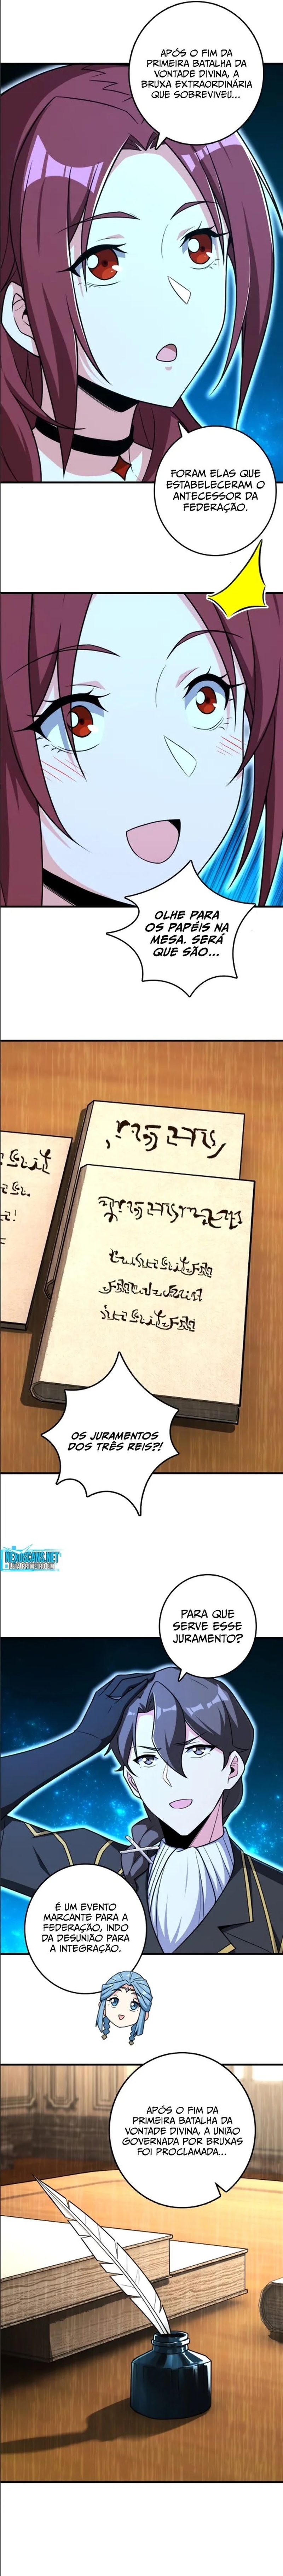 APÓS O FIM DA
PRIMEIRA BATALHA DA
VONTADE DIVINA, A
BRUXA EXTRAORDINÁRIA
QUE SOBREVIVEU...
FORAM ELAS QUE
ESTABELECERAM O
ANTECESSOR DA
FEDERAÇÃO.
OLHE PARA
OS PAPÉIS NA
MESA. SERÁ
QUE SÃO...
OS JURAMENTOS
DOS TRÊS REIS?!
NEXOSCANS.NET
PARA QUE
SERVE ESSE
JURAMENTO?
É UM EVENTO
MARCANTE PARA A
FEDERAÇÃO, INDO
DA DESUNIÃO PARA
A INTEGRAÇÃO.
APÓS O FIM DA
PRIMEIRA BATALHA DA
VONTADE DIVINA, A UNIÃO
GOVERNADA POR BRUXAS
FOI PROCLAMADA...